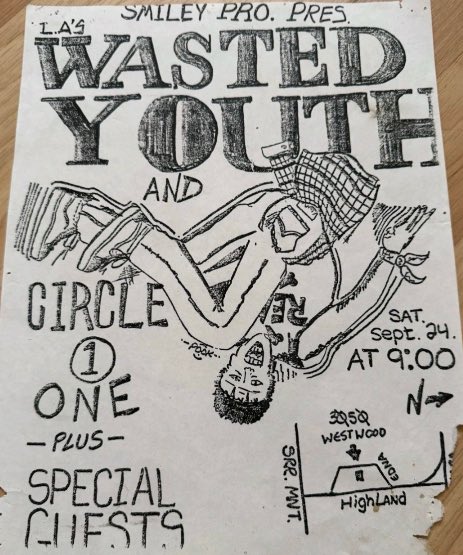 SMILEY PRO. PRES.
L.A'S
WASTED
YOUTH
AND
CIRCLE
1
ONE
- PLUS -
SPECIAL
GUESTS
SAT.
Sept. 24.
AT 9:00
N
WESTWOOD
EDNA
HIGHLAND